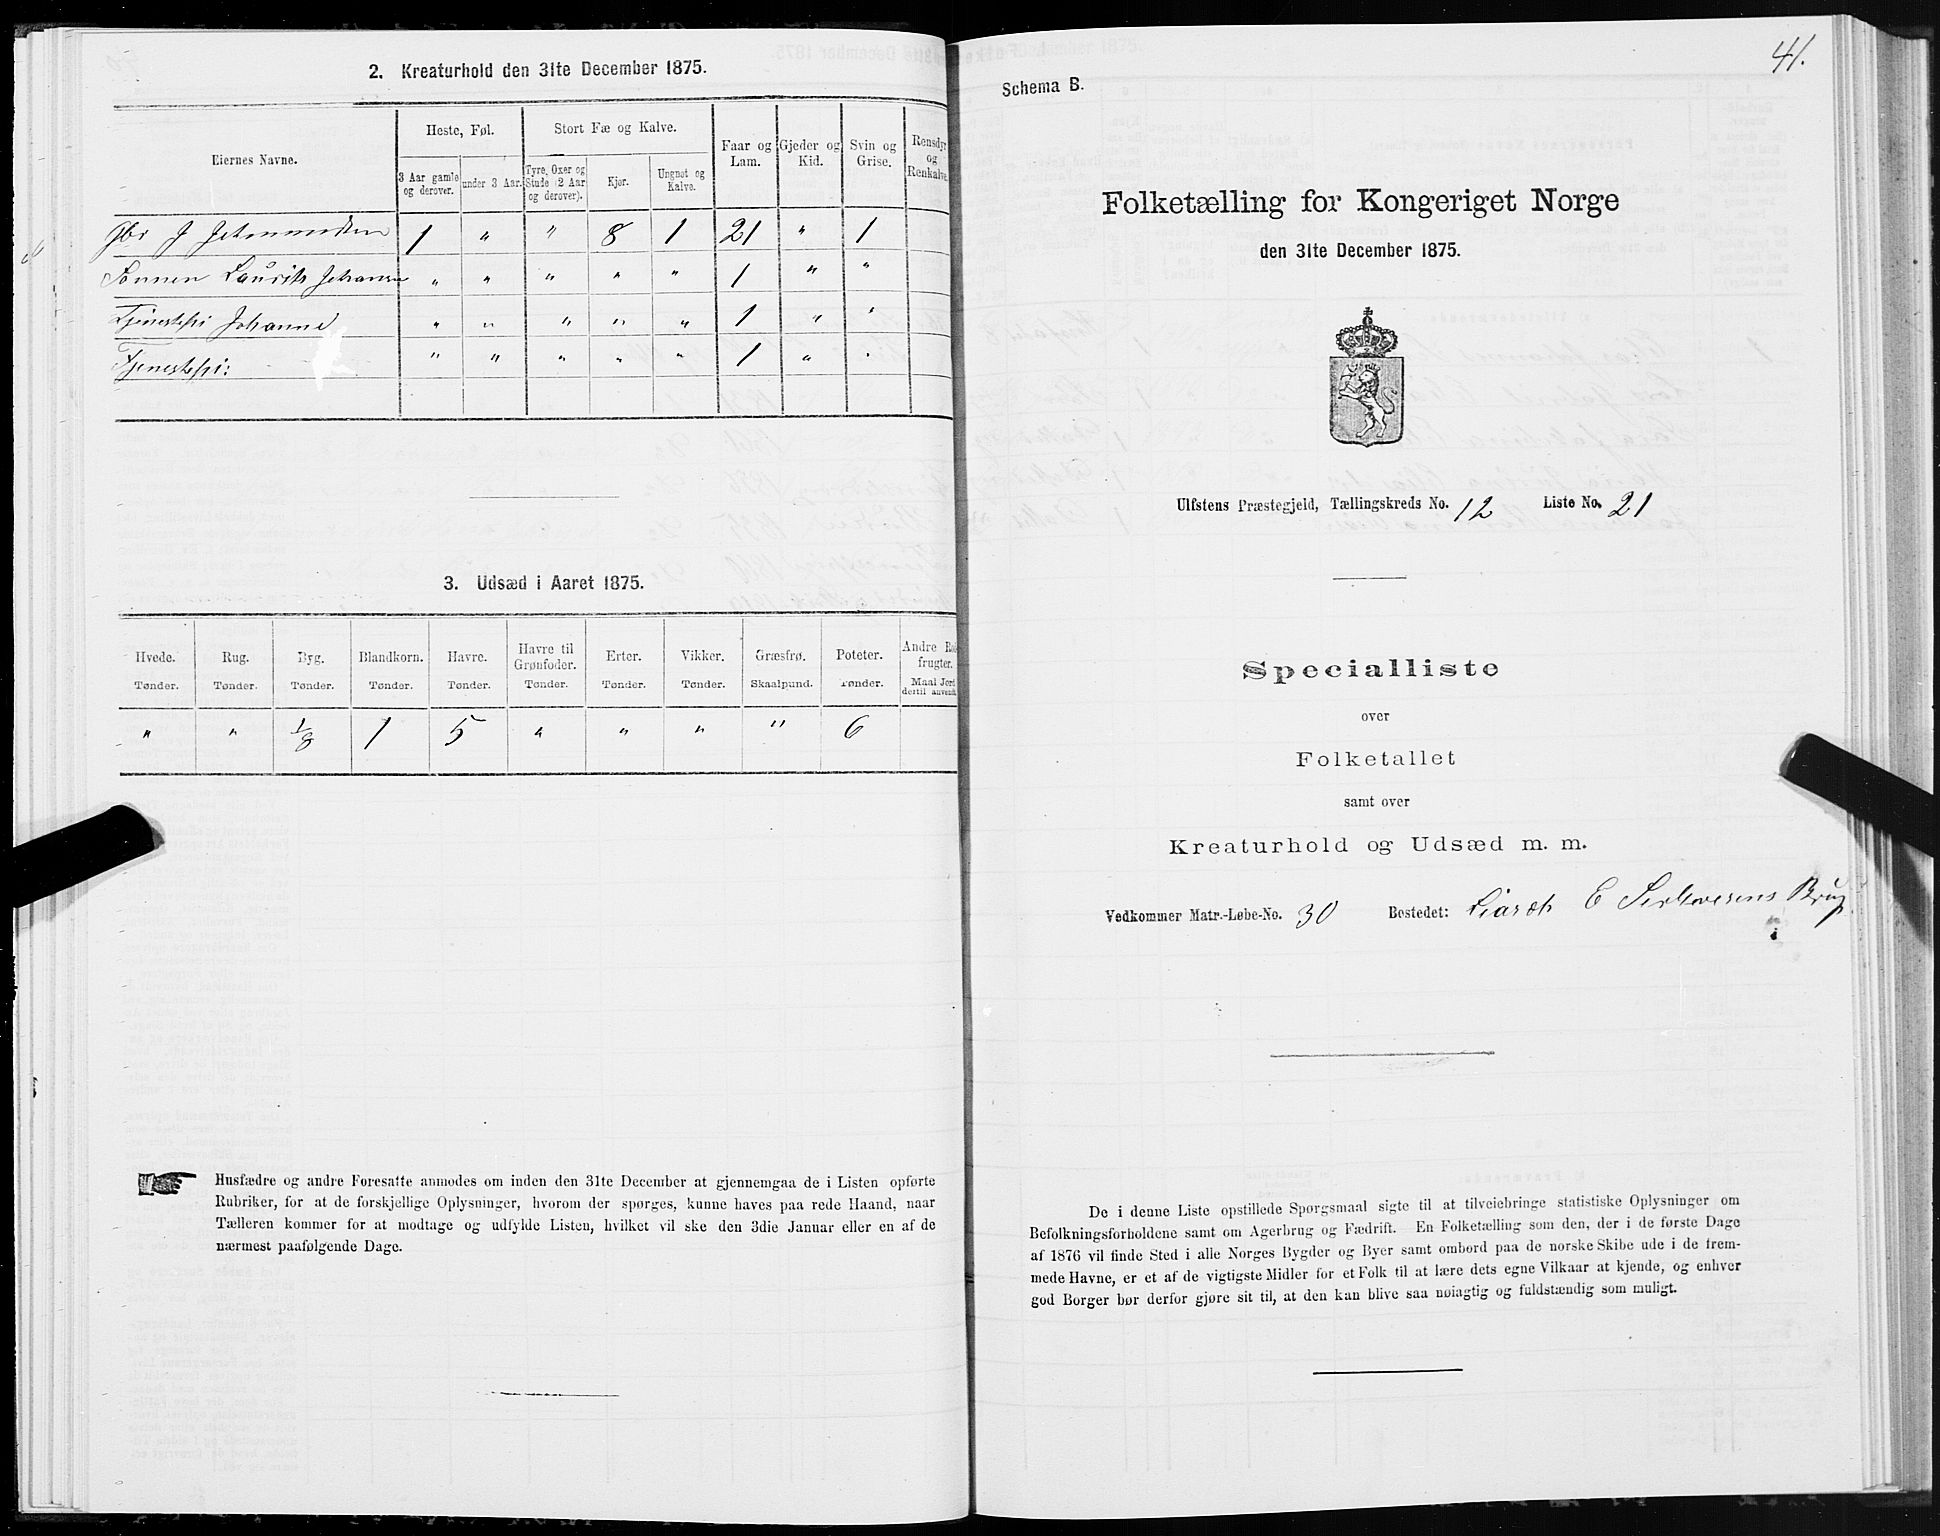 2. Kreaturhold den 31te December 1875.
Eiernes Navne.
Heste, Føl.
Stort Fæ og Kalve.
Faar og Lam.
Gjeder og Kid.
Svin og Grise.
Rensdyr og Renkalve.
3 Aar gamle og derover.
under 3 Aar.
Tyre, Oxer og Stude (2 Aar og derover).
Kjør.
Ungnøt og Kalve.
J 1 " " 8 1 21 " 1
Sønnen Laurits Johansen " " " " " 1 " "
Tjenestepi Johanne " " " " " 1 " "
Tjenestepi: " " " " " 1 " "
3. Udsæd i Aaret 1875.
Hvede. Rug. Byg. Blandkorn. Havre. Havre til Grønfoder. Erter. Vikker. Græsfrø. Poteter. Andre Rodfrugter.
Tønder. Tønder. Tønder. Tønder. Tønder. Tønder. Tønder. Tønder. Skaalpund. Tønder. Maal Jord dertil anvendt.
" " 1/8 1 5 " " " " 6
Husfædre og andre Foresatte anmodes om inden den 31te December at gjennemgaa de i Listen opførte
Rubriker, for at de forskjellige Oplysninger, hvorom der spørges, kunne haves paa rede Haand, naar
Tælleren kommer for at modtage og udfylde Listen, hvilket vil ske den 3die Januar eller en af de
nærmest paafølgende Dage.
41.
Schema B.
Folketælling for Kongeriget Norge
den 31te December 1875.
Ulfstens Præstegjeld, Tællingskreds No. 12 Liste No. 21
Specialliste
over
Folketallet
samt over
Kreaturhold og Udsæd m. m.
Vedkommer Matr.-Løbe-No. 30 Bostedet: E Brug
De i denne Liste opstillede Spørgsmaal sigte til at tilveiebringe statistiske Oplysninger om
Befolkningsforholdene samt om Agerbrug og Fædrift. En Folketælling som den, der i de første Dage
af 1876 vil finde Sted i alle Norges Bygder og Byer samt ombord paa de norske Skibe ude i de frem-
mede Havne, er et af de vigtigste Midler for et Folk til at lære dets egne Vilkaar at kjende, og enhver
god Borger bør derfor gjøre sit til, at den kan blive saa nøiagtig og fuldstændig som muligt.